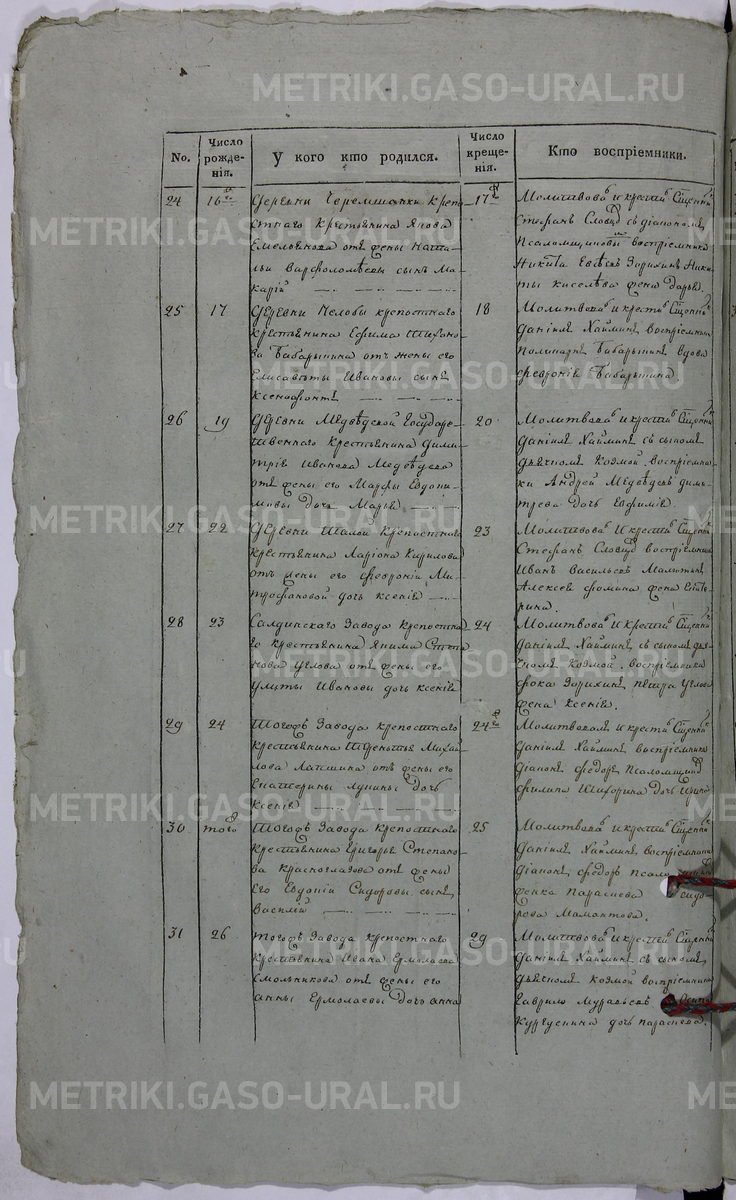 METRIKI.GASO-URAL.RU
No.
Число рожденія.
У кого кто родился.
Число крещенія.
Кто воспріемники.
24
16
Деревни Черемшанки крепо
стнаго Крестьянина Якова
Емельянова отъ жены Ната
льи Варфоломѣевы сынъ Ма
карій
17
Молитвовалъ и крестилъ Сщенникъ
Стефанъ Словцовъ съ діакономъ
Никита Евсѣевъ Зырихинъ Ники
ты киселева жена Дарья.
25
17
Деревни Нелобы крепостнаго
крестьянина Ефима Тихано
ва Бабарыкина отъ жены его
Елисаветы Ивановы сынъ
Ксенофонтъ
18
Молитвовалъ и крестилъ Сщенникъ
Даніилъ Хаймин воспріемники
Бабарыкинъ Вдова
Февронія Бабарыкина
26
19
Деревни Медведской Государ
ственнаго Крестьянина Дими
трія Иванова Медведева
отъ жены его Марфы Евдоки
мовы дочь Марья
20
Молитвовалъ и крестилъ Сщенникъ
Даніилъ Хаймин съ сыномъ
дьячкомъ Козмой. воспріемни
ки Андрей Медведевъ дими
трева дочь Евфимія.
27
22
Деревни Шалой крепостнаго
крестьянина Ларіона Кирилова
отъ жены его Февроніи Ми
трофановой дочь Ксенія
23
Молитвовалъ И крестилъ Сщенникъ
Стефанъ Словцовъ воспріемники
Иванъ Васильевъ
Алексея Фомина жена Екате
рина.
28
23
Салдинскаго Завода крепостна
го крестьянина Якима
Углова отъ жены его
Улиты Ивановы дочь Ксенія
24
Молитвовалъ И крестилъ Сщенникъ
Даніилъ Хаймин съ сыномъ дья
чкомъ Козмой. воспріемники
Фока Зырихинъ Петра Углова
жена Ксенія.
29
24
Тогожъ Завода крепостнаго
крестьянина Терентья Михай
лова Лапшина отъ жены его
Екатерины Лукины дочь
Ксенія
24
Молитвовалъ И крестилъ Сщенникъ
Даніилъ Хаймин воспріемники
діаконъ Федоръ
филипа дочь
30
того
Тогожъ Завода крепостнаго
крестьянина Григорья Степано
ва Красноглазова отъ жены
его Евдокіи Сидоровы сынъ
Василій
25
Молитвовалъ И крестилъ Сщенникъ
Даніилъ Хаймин воспріемники
діаконъ Федоръ
Параскева
Мамонтова.
31
26
Тогожъ Завода крепостнаго
крестьянина Ивана Ермолаева
Смольникова отъ жены его
Анны Ермолаевы дочь Анна
29
Молитвовалъ И крестилъ Сщенникъ
Даніилъ Хаймин съ сыномъ
дьячкомъ Козмой воспріемники
Гаврило Муравьевъ
дочь параскева.